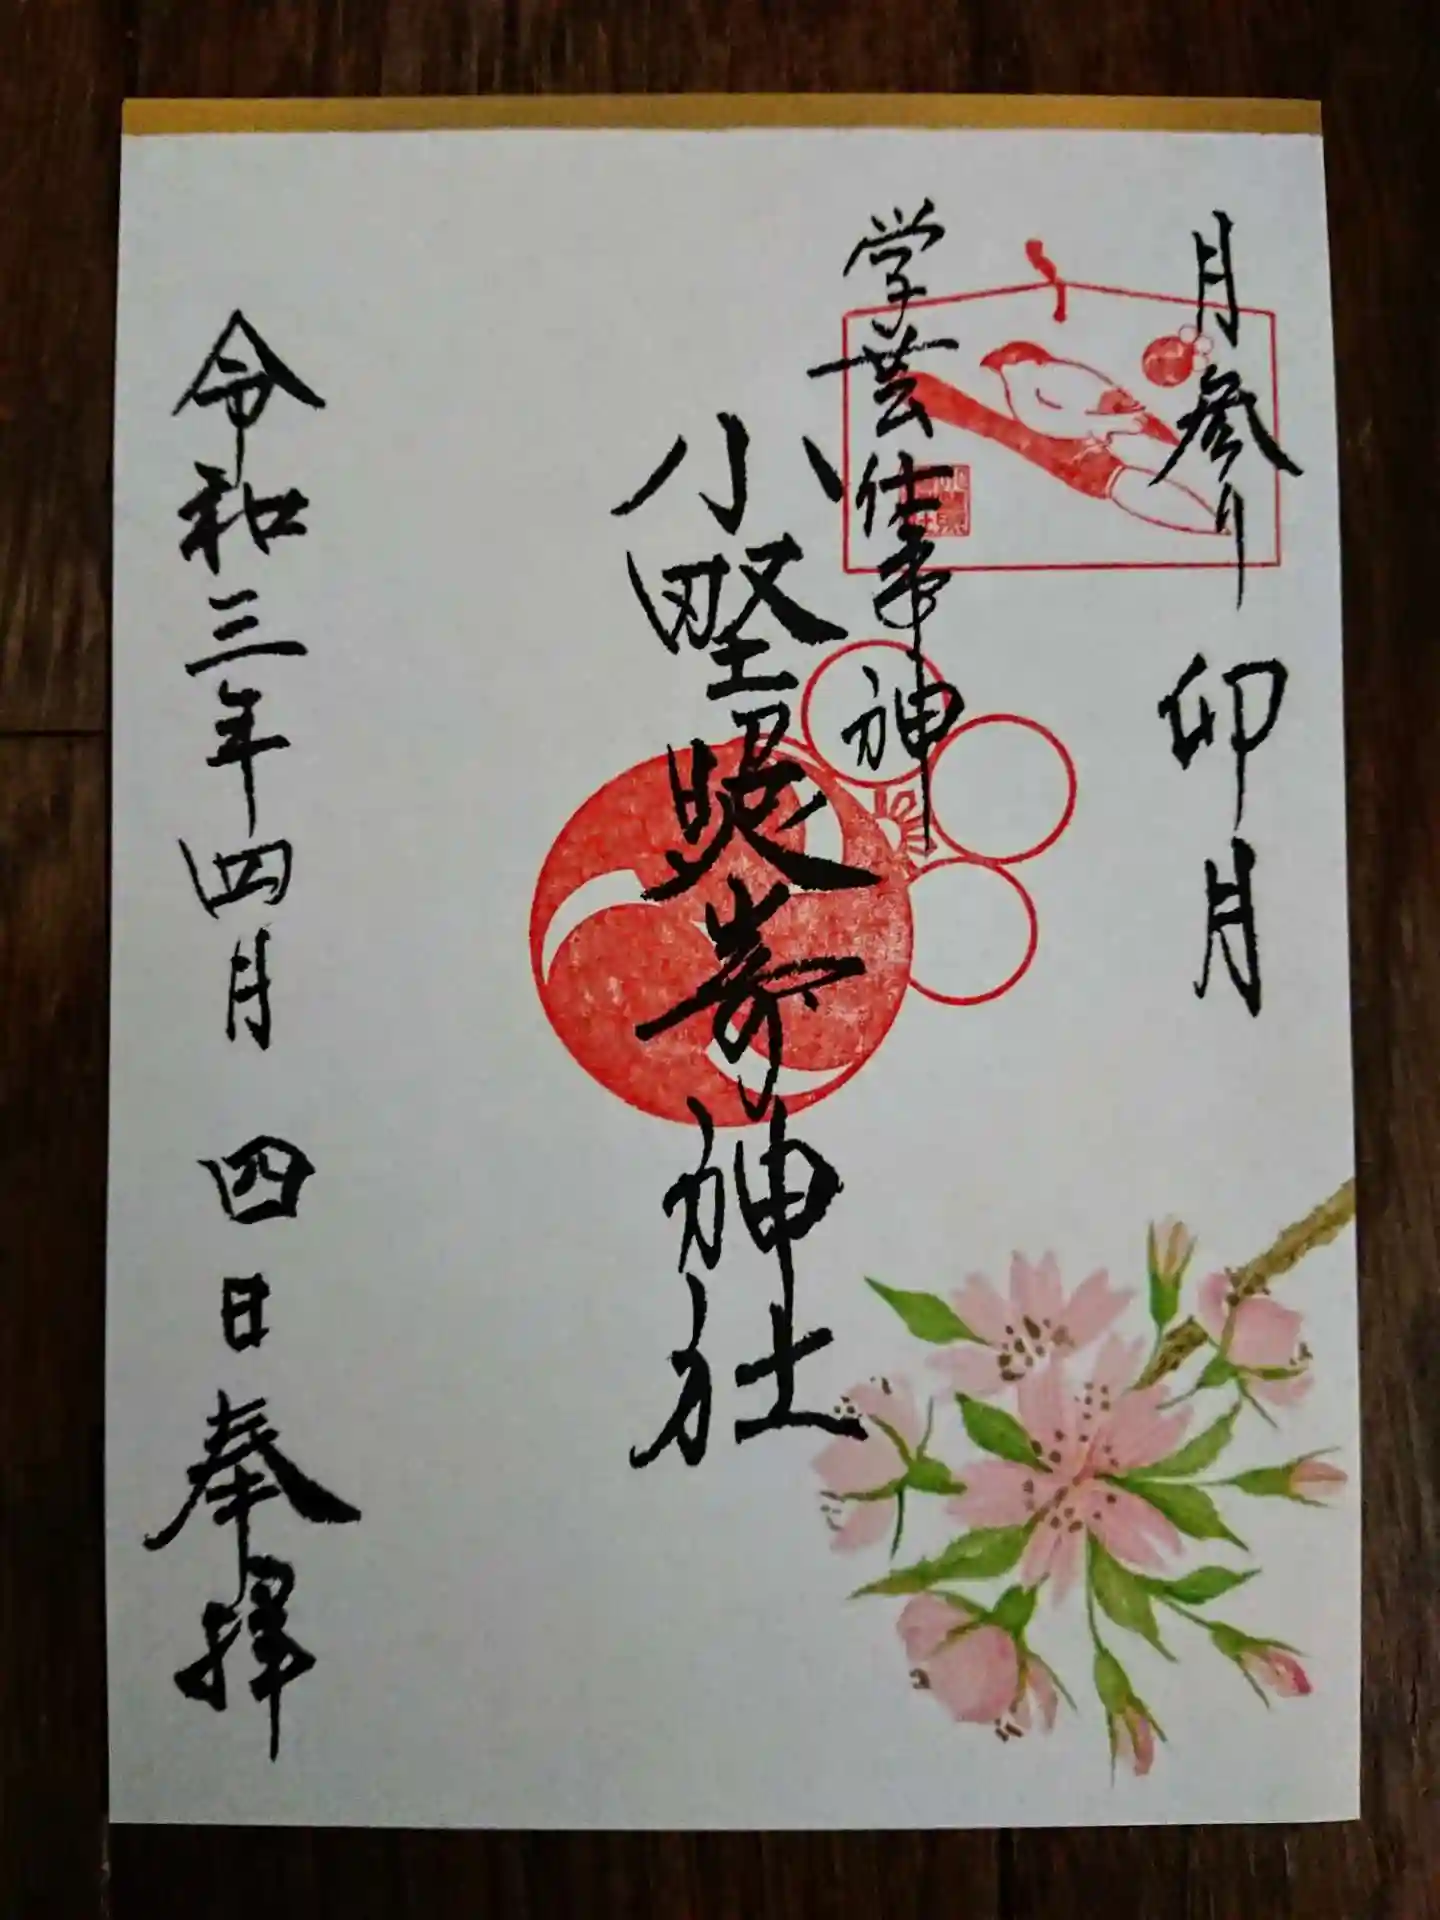 月參り 卯月
学芸仕事神
小野照崎神社
令和三年四月 四日奉拝